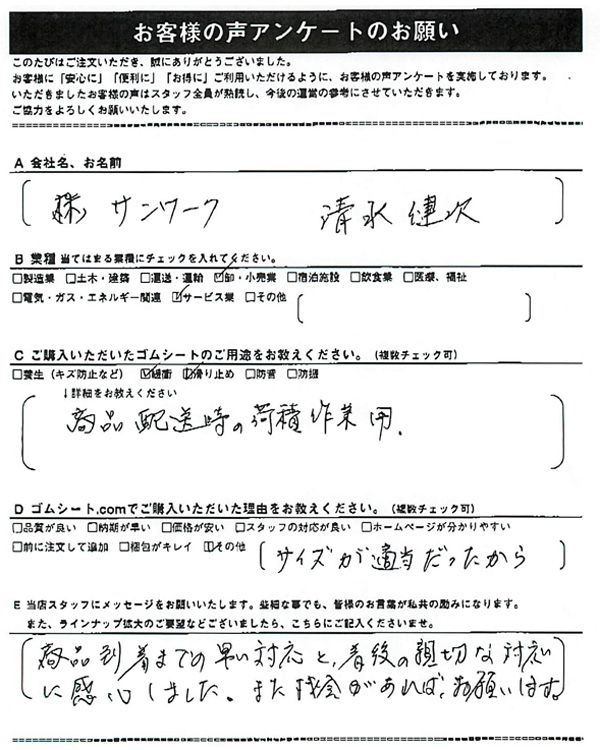 お客様の声アンケートのお願い
このたびはご注文いただき、誠にありがとうございました。
お客様に「安心に」「便利に」「お得に」ご利用いただけるように、お客様の声アンケートを実施しております。
いただきましたお客様の声はスタッフ全員が熟読し、今後の運営の参考にさせていただきます。
ご協力をよろしくお願いいたします。
A 会社名、お名前
㈱ サンワーク 清水健次
B 業種 当てはまる業種にチェックを入れてください。
□製造業 □土木・建築 □運送・運輸 ☑卸・小売業 □宿泊施設 □飲食業 □医療、福祉
□電気・ガス・エネルギー関連 ☑サービス業 □その他
C ご購入いただいたゴムシートのご用途をお教えください。(複数チェック可)
□養生(キズ防止など) ☑緩衝 ☑滑り止め □防音 □防振
↓詳細をお教えください
商品配送時の荷積作業用.
D ゴムシート.comでご購入いただいた理由をお教えください。(複数チェック可)
□品質が良い □納期が早い □価格が安い □スタッフの対応が良い □ホームページが分かりやすい
□前に注文して追加 □梱包がキレイ ☑その他 (サイズが適当だったから)
E 当店スタッフにメッセージをお願いいたします。些細な事でも、皆様のお言葉が私共の励みになります。
また、ラインナップ拡大のご要望などございましたら、こちらにご記入くださいませ。
商品到着までの早い対応と、着後の親切な対応
に感心しました。また機会があれば、お願いします。